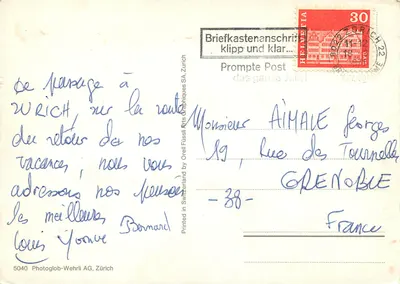 Briefkastenanschrift
klipp und klar...
Prompte Post
HELVETIA
30
8022 ZÜRICH 22
de passage à
ZURICH, sur la route
du retour de nos
vacances, nous vous
adressons nos pensées
les meilleures
Louis Yvonne Bernard
Monsieur AIMALE Georges
19, Rue des Tournelles
GRENOBLE
-38-
France
Printed in Switzerland by Orell Füssli Arts Graphiques SA, Zurich
5040 Photoglob-Wehrli AG, Zürich